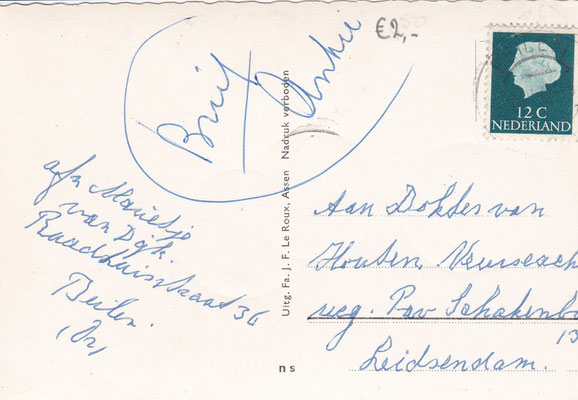 €2,-
Brief
Ankie
12 C
NEDERLAND
afz Marietje
van Dijk.
Raadhuisstraat 36
Beilen.
(Dr)
Uitg. Fa. J. F. Le Roux, Assen Nadruk verboden
Aan Dokter van
Houten
weg. Pav
13
Leidsendam.
ns